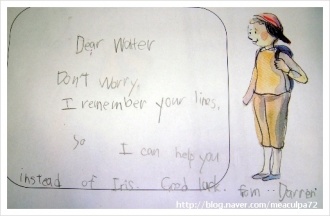 Dear Water
Don't worry,
I remember your lines,
So I can help you
instead of Iris. Good luck.
from -- Darren
http://blog.naver.com/meaculpa72